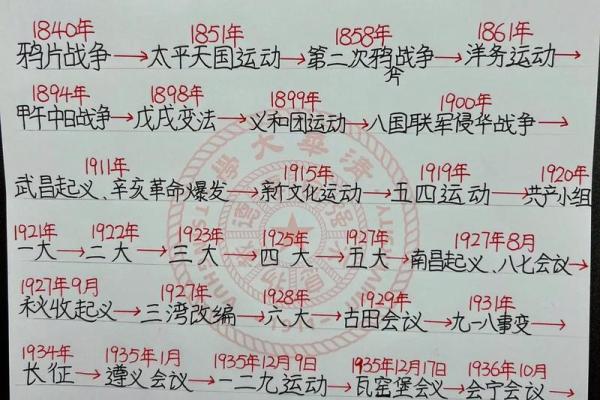 1840年 1851年 1858年 1861年
鸦片战争→太平天国运动→第二次鸦战争→洋务运动→
片
1894年 1898年 1899年 1900年
甲午中日战争→戊戌变法→义和团运动→八国联军侵华战争→
1911年 1915年 1919年 1920年
武昌起义、辛亥革命爆发→新文化运动→五四运动→共产小组
1921年 1922年 1923年 1925年 1927年 1927年8月
一大→二大→三大→四大→五大→南昌起义、八七会议→
1927年9月 1927年 1928年 1929年 1931年
秋收起义→三湾改编→六大→古田会议→九一八事变→
1934年 1935年1月 1935年12月9日 1935年12月17日 1936年10月
长征→遵义会议→一二九运动→瓦窑堡会议→会宁会议→